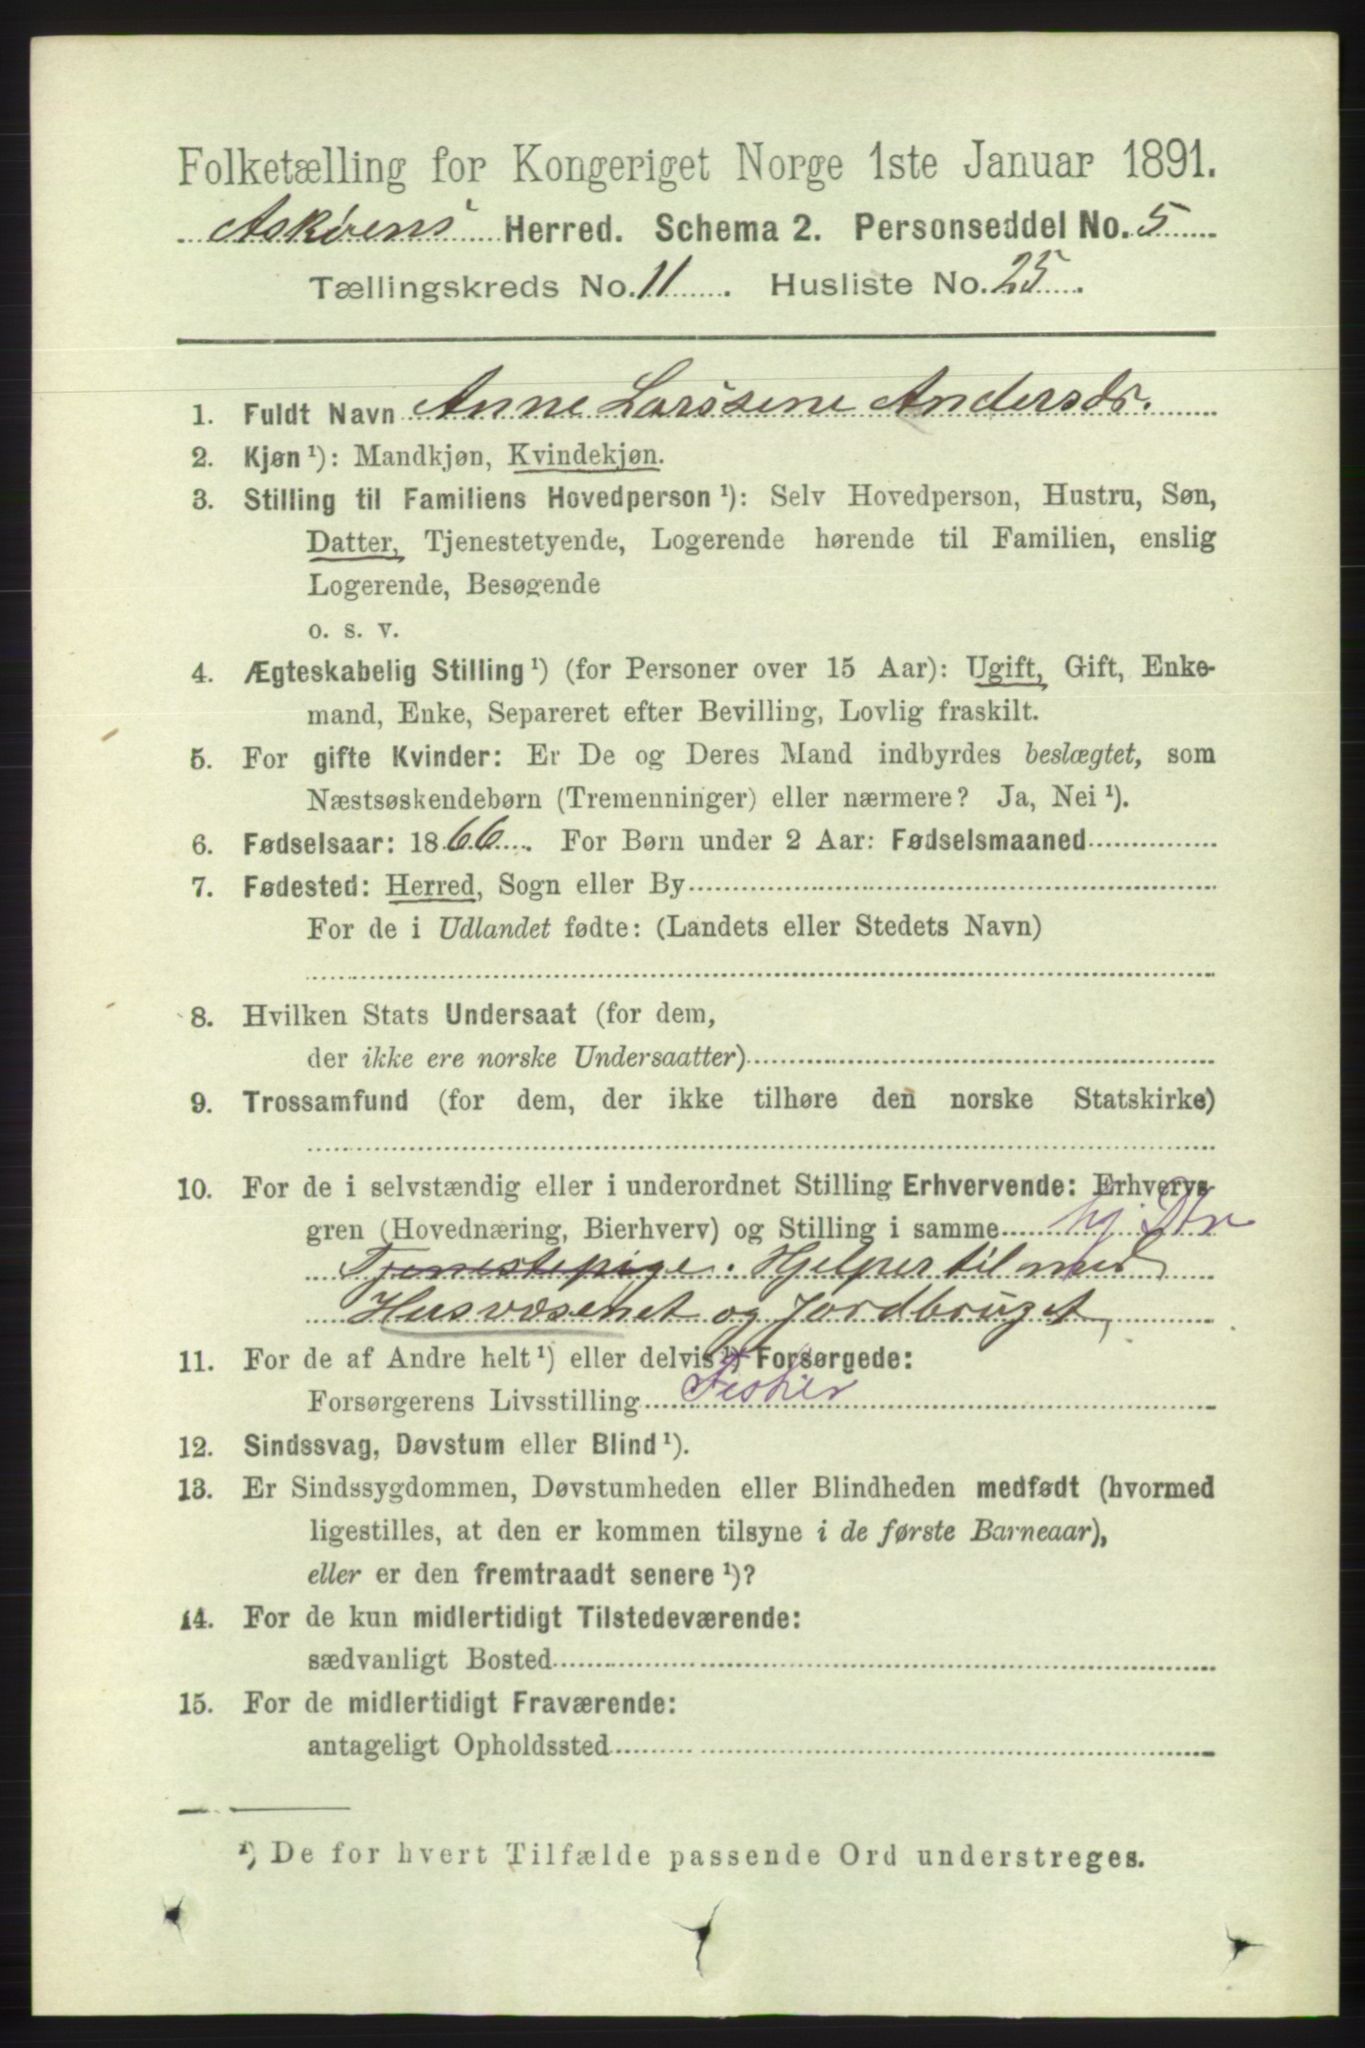 Folketælling for Kongeriget Norge 1ste Januar 1891.
Askøens Herred. Schema 2. Personseddel No. 5
Tællingskreds No. 11. Husliste No. 25.
1. Fuldt Navn Anne Larssine Andersdr.
2. Kjøn ¹): Mandkjøn, Kvindekjøn.
3. Stilling til Familiens Hovedperson ¹): Selv Hovedperson, Hustru, Søn,
Datter, Tjenestetyende, Logerende hørende til Familien, enslig
Logerende, Besøgende
o. s. v.
4. Ægteskabelig Stilling ¹) (for Personer over 15 Aar): Ugift, Gift, Enke-
mand, Enke, Separeret efter Bevilling, Lovlig fraskilt.
5. For gifte Kvinder: Er De og Deres Mand indbyrdes beslægtet, som
Næstsøskendebørn (Tremenninger) eller nærmere? Ja, Nei ¹).
6. Fødselsaar: 1866. For Børn under 2 Aar: Fødselsmaaned
7. Fødested: Herred, Sogn eller By
For de i Udlandet fødte: (Landets eller Stedets Navn)
8. Hvilken Stats Undersaat (for dem,
der ikke ere norske Undersaatter)
9. Trossamfund (for dem, der ikke tilhøre den norske Statskirke)
10. For de i selvstændig eller i underordnet Stilling Erhvervende: Erhvervs-
gren (Hovednæring, Bierhverv) og Stilling i samme hj. Dtr
Tjenestepige. Hjelper til med
Husvæsenet og Jordbruget,
11. For de af Andre helt ¹) eller delvis ¹) Forsørgede:
Forsørgerens Livsstilling Fisker
12. Sindssvag, Døvstum eller Blind ¹).
13. Er Sindssygdommen, Døvstumheden eller Blindheden medfødt (hvormed
ligestilles, at den er kommen tilsyne i de første Barneaar),
eller er den fremtraadt senere ¹)?
14. For de kun midlertidigt Tilstedeværende:
sædvanligt Bosted
15. For de midlertidigt Fraværende:
antageligt Opholdssted
¹) De for hvert Tilfælde passende Ord understreges.